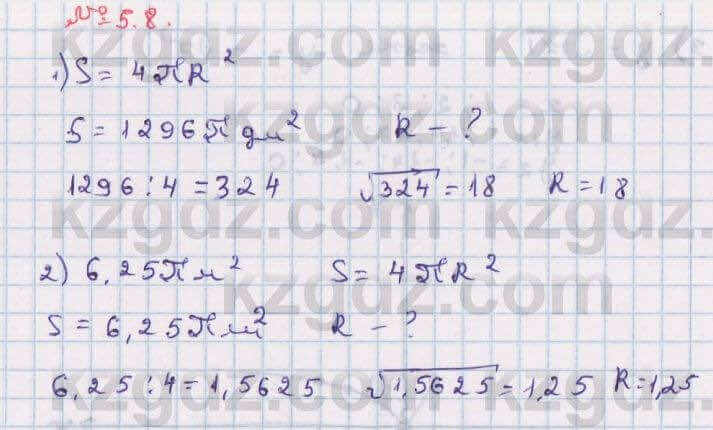 № 5.8.
1) S = 4πR²
S = 1296π дм² R – ?
1296 : 4 = 324 √324 = 18 R = 18
2) 6,25π м² S = 4πR²
S = 6,25π м² R – ?
6,25 : 4 = 1,5625 √1,5625 = 1,25 R = 1,25
kzgdz.com
kzgdz.com
kzgdz.com
kzgdz.com
kzgdz.com